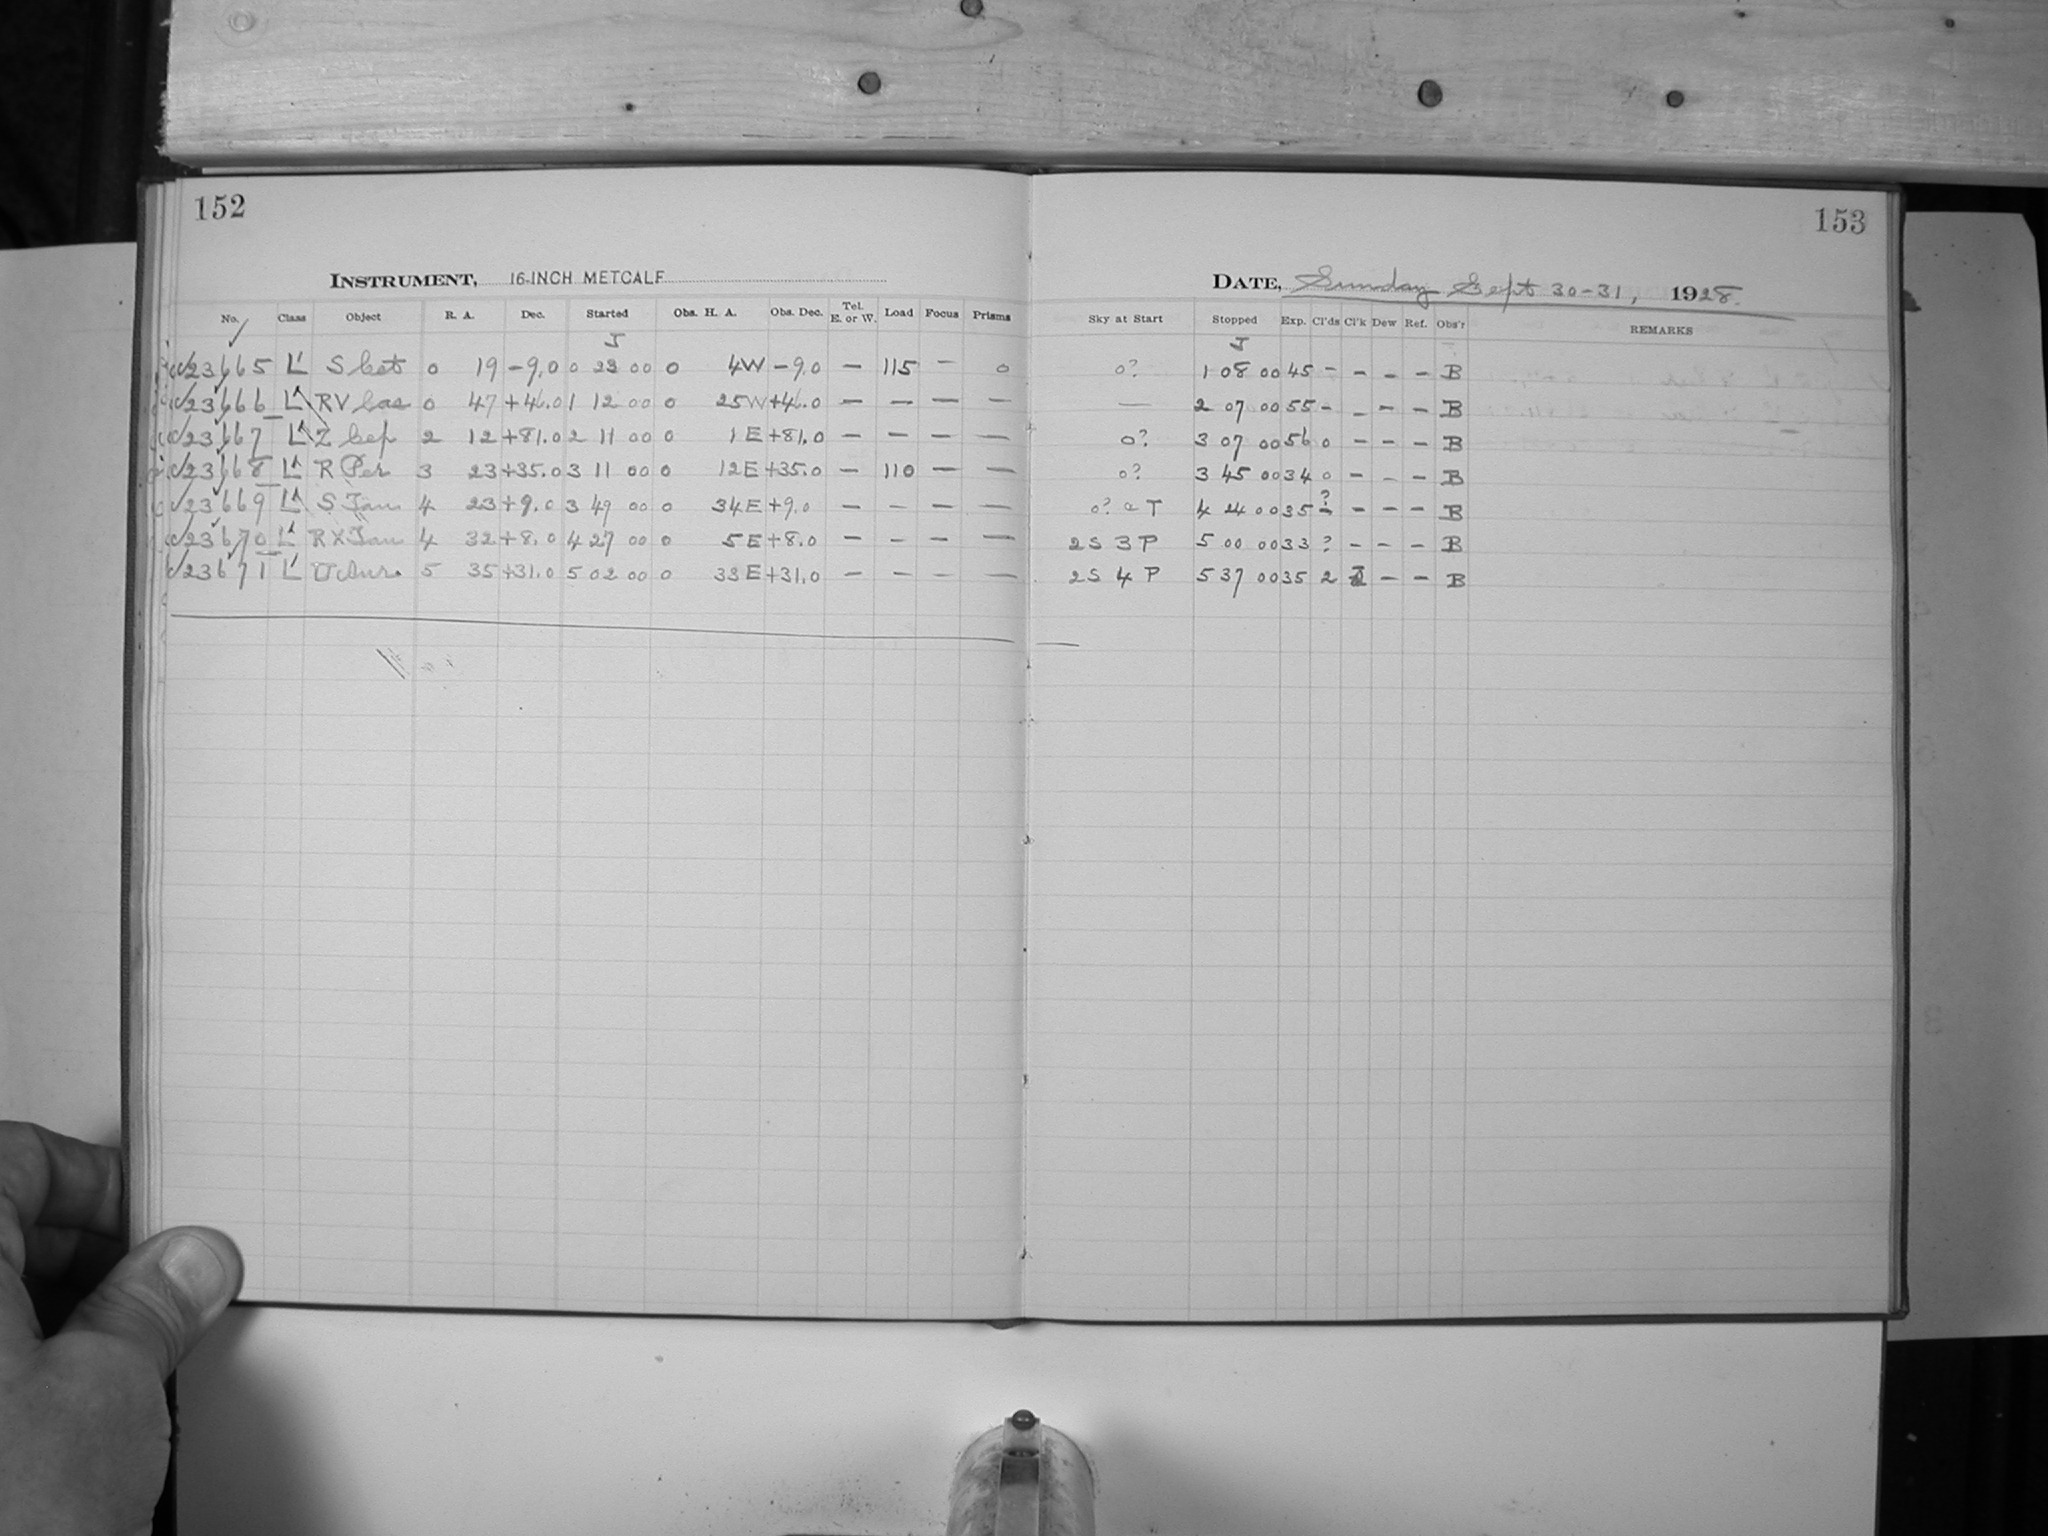 152
153
INSTRUMENT, 16-INCH METCALF
DATE, Sunday Sept 30-31, 1928.
No. Class Object R. A. Dec. Started Obs. H. A. Obs. Dec. Tel. E. or W. Load Focus Prisms Sky at Start Stopped Exp. Cl'ds Cl'k Dew Ref. Obs'r REMARKS
J J
23665 L' S Cet 0 19 -9.0 0 23 00 0 4W -9.0 — 115 — 0 0? 1 08 00 45 - - - - B
23666 L' RV Cas 0 47 +46.0 1 12 00 0 25W +46.0 — — — — — 2 07 00 55 - - - - B
23667 L' Z Cep 2 12 +81.0 2 11 00 0 1E +81.0 — — — — 0? 3 07 00 56 0 - - - B
23668 L' R Per 3 23 +35.0 3 11 00 0 12E +35.0 — 110 — — 0? 3 45 00 34 0 - - - B
23669 L' S Tau 4 23 +9.0 3 49 00 0 34E +9.0 — — — — 0? T 4 24 00 35 ? - - - B
23670 L' RX Tau 4 32 +8.0 4 27 00 0 5E +8.0 — — — — 2S 3P 5 00 00 33 ? - - - B
23671 L' U Aur. 5 35 +31.0 5 02 00 0 33E +31.0 — — — — 2S 4P 5 37 00 35 2 - - B